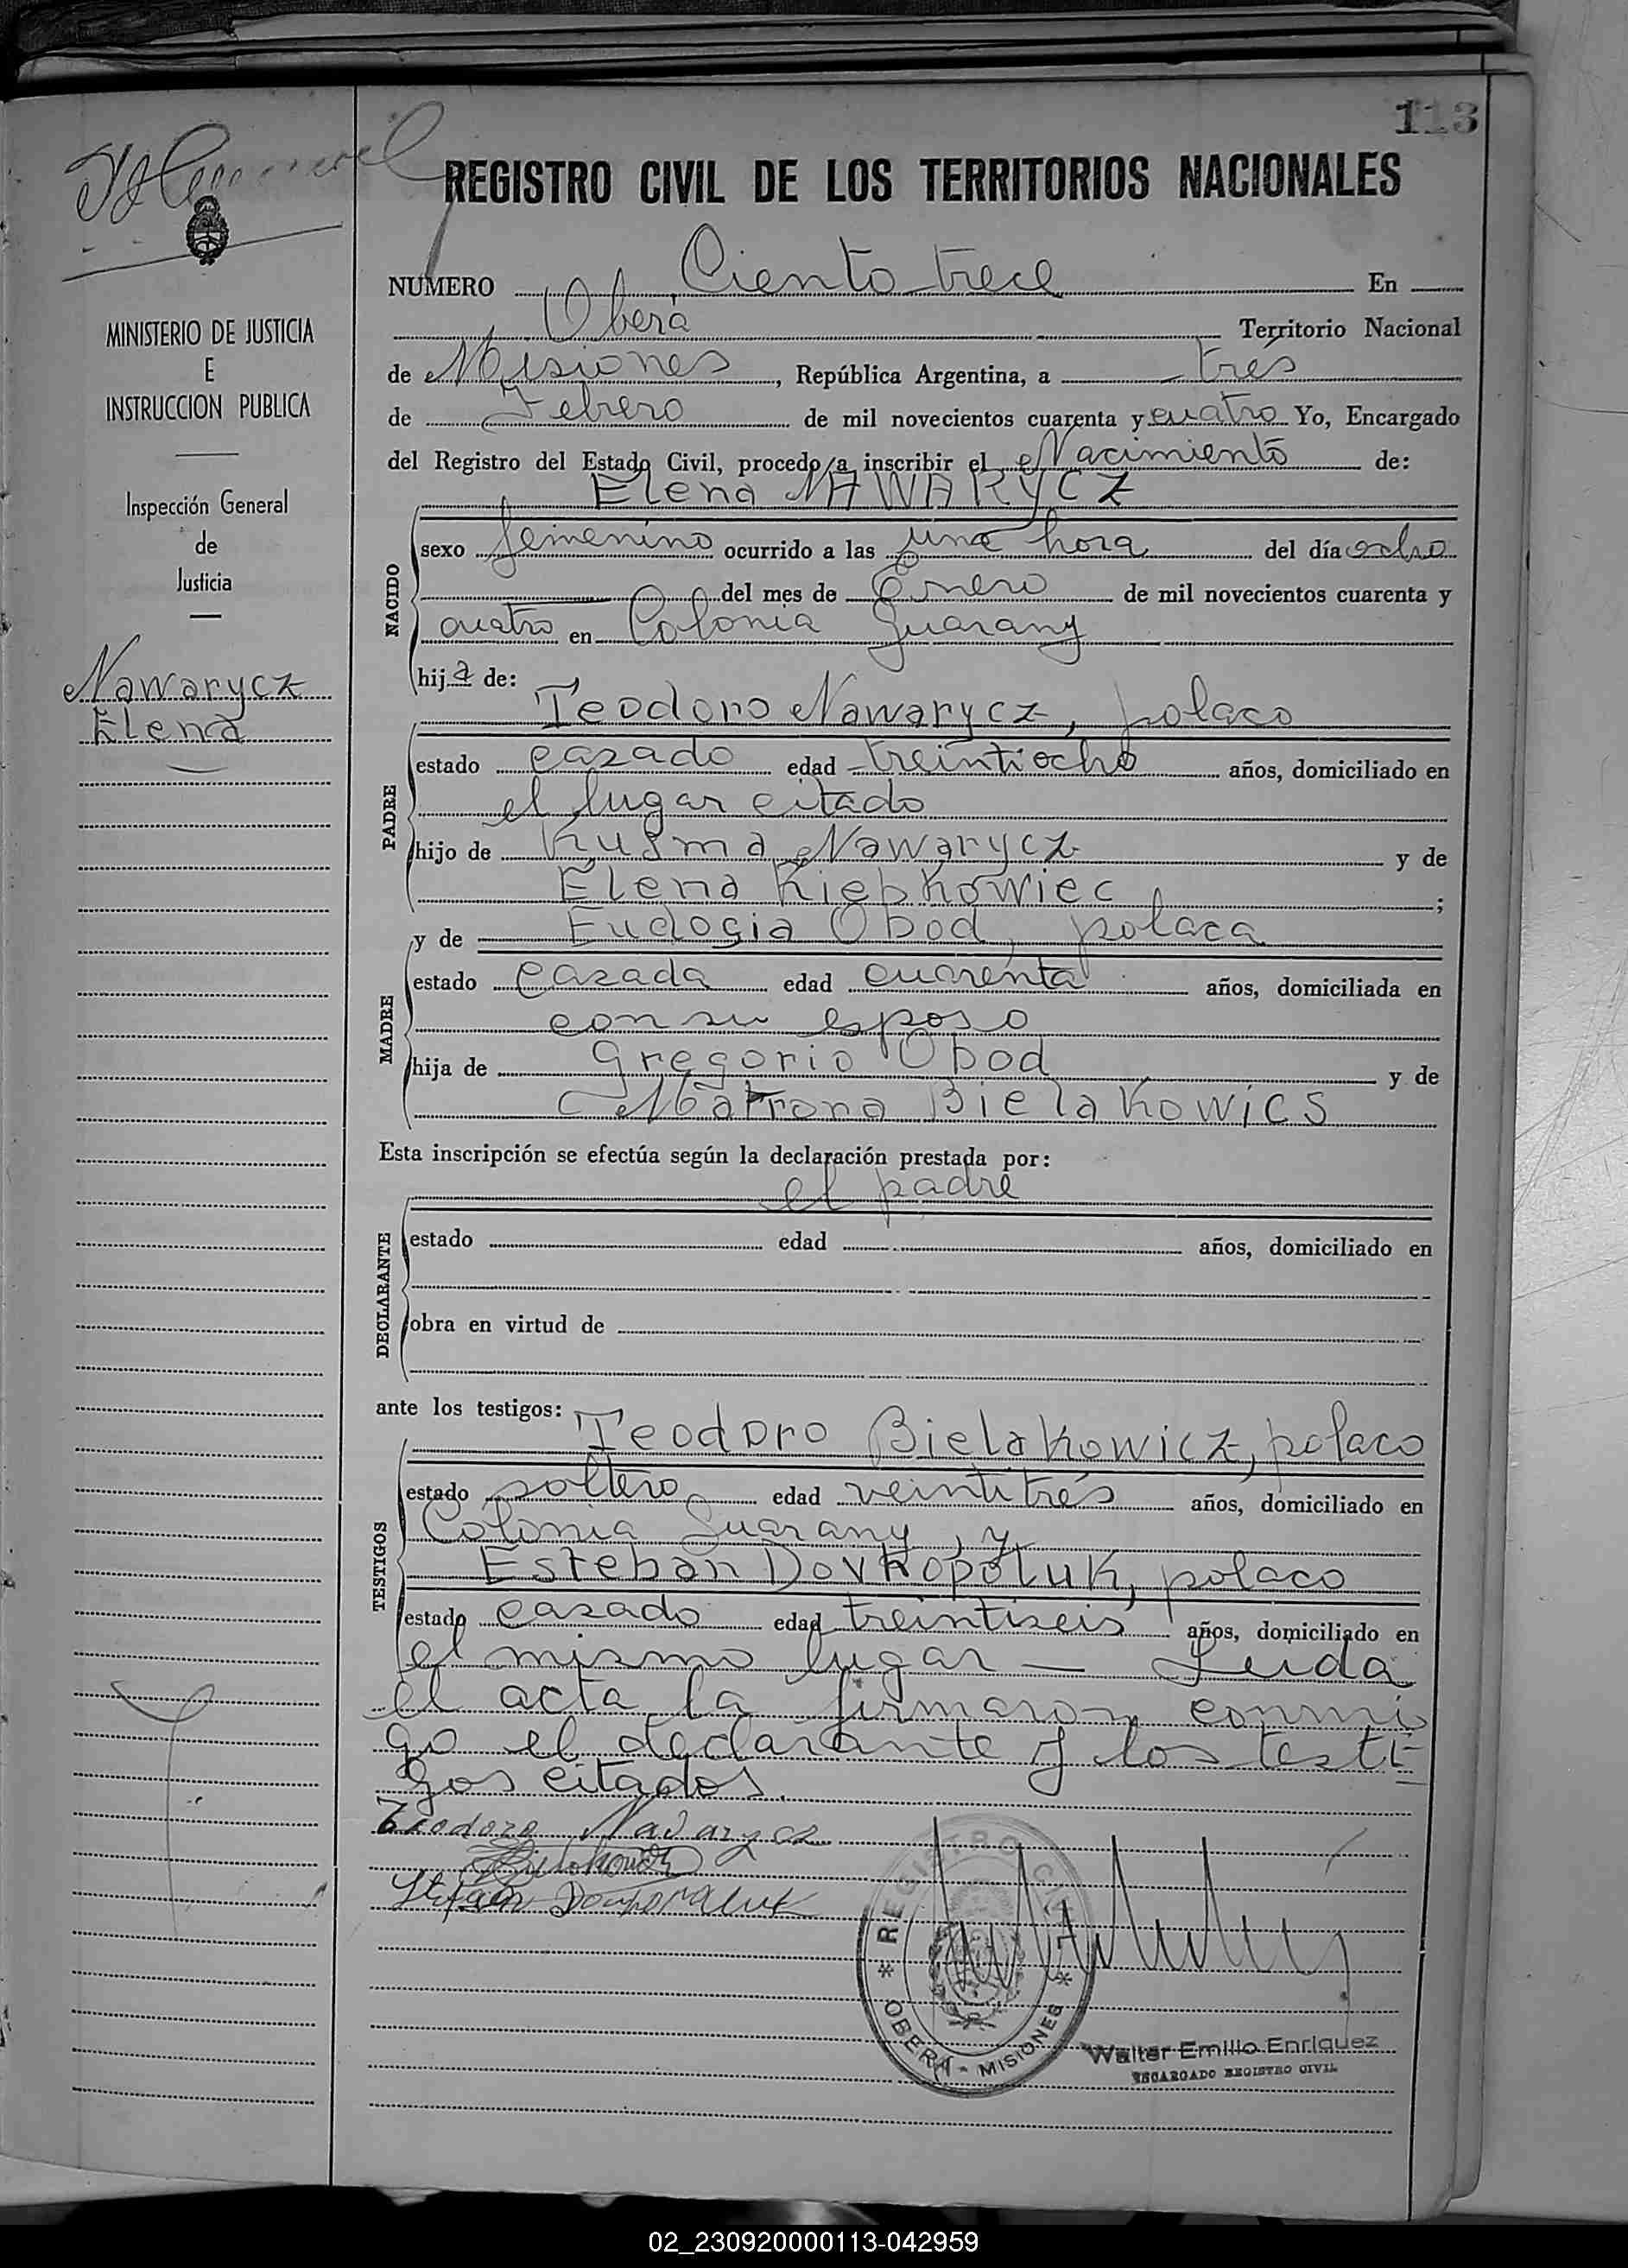 113
REGISTRO CIVIL DE LOS TERRITORIOS NACIONALES
NUMERO Ciento trece En
Oberá Territorio Nacional
de Misiones, República Argentina, a tres
de Febrero de mil novecientos cuarenta y cuatro Yo, Encargado
del Registro del Estado Civil, procedo a inscribir el Nacimiento de:
Elena NAWARYCZ
NACIDO
sexo femenino ocurrido a las una hora del día ocho
del mes de Enero de mil novecientos cuarenta y
cuatro en Colonia Guarany
hija de:
PADRE
Teodoro Nawarycz, polaco
estado casado edad treintiocho años, domiciliado en
el lugar citado
hijo de Kusma Nawarycz y de
Elena Kiebkowiec;
MADRE
y de Eudosia Obod, polaca
estado casada edad cuarenta años, domiciliada en
con su esposo
hija de Gregorio Obod y de
Matrona Bielakowics
Esta inscripción se efectúa según la declaración prestada por:
el padre
DECLARANTE
estado edad años, domiciliado en
obra en virtud de
ante los testigos:
TESTIGOS
Teodoro Bielakowicz, polaco
estado soltero edad veintitrés años, domiciliado en
Colonia Guarany, y
Esteban Dovkopotuk, polaco
estado casado edad treintiseis años, domiciliado en
el mismo lugar — Leida
el acta la firmaron conmi
go el declarante y los testi
gos citados.
Teodoro Nawarycz
Stefan
REGISTRO CIVIL
* OBERA - MISIONES *
Walter Emilio Enriquez
ENCARGADO REGISTRO CIVIL
MINISTERIO DE JUSTICIA
E
INSTRUCCION PUBLICA
Inspección General
de
Justicia
Nawarycz
Elena
02_230920000113-042959